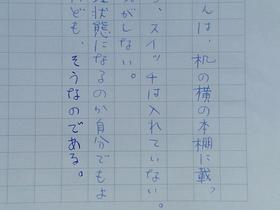 んは、机の横の本棚に載
、スイッチは入れていない。
がしない。
状態になるのか自分でもよ
ども、そうなのである。